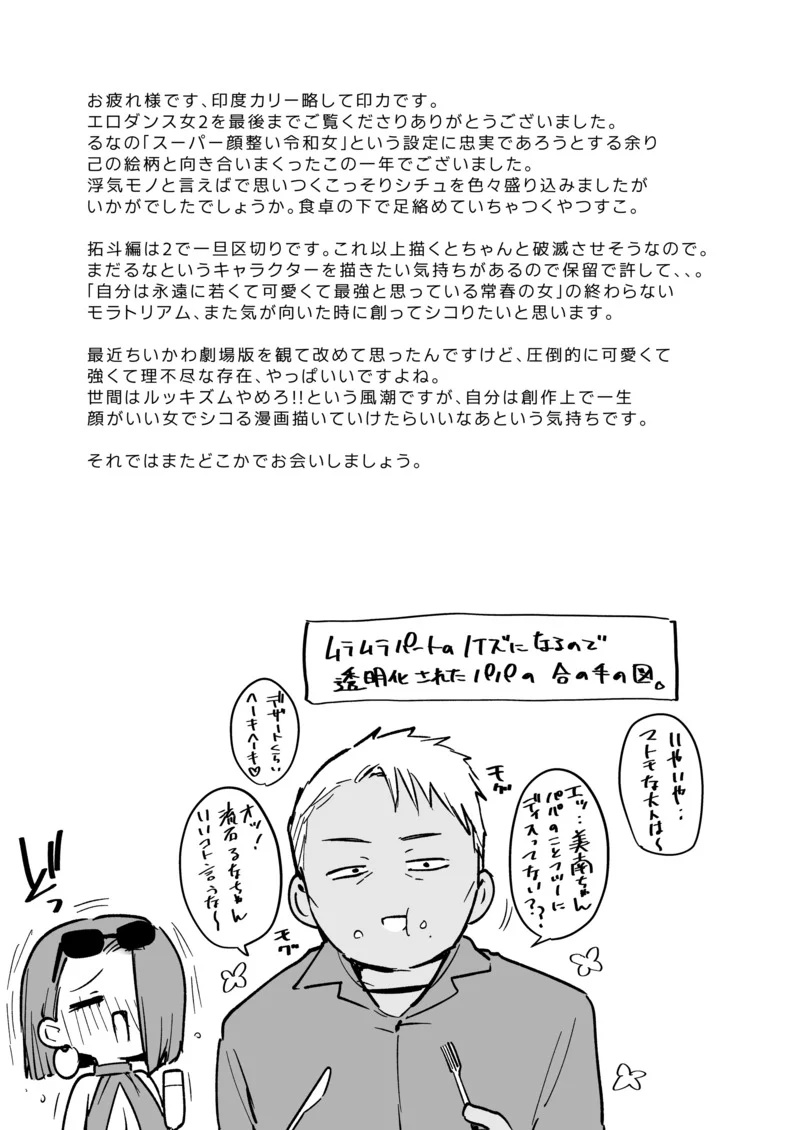 お疲れ様です、印度カリー略して印力です。
エロダンス女2を最後までご覧くださりありがとうございました。
るなの「スーパー顔整い令和女」という設定に忠実であろうとする余り
己の絵柄と向き合いまくったこの一年でございました。
浮気モノと言えばで思いつくこっそりシチュを色々盛り込みましたが
いかがでしたでしょうか。食卓の下で足絡めていちゃつくやつすこ。
拓斗編は2で一旦区切りです。これ以上描くとちゃんと破滅させそうなので。
まだるなというキャラクターを描きたい気持ちがあるので保留で許して、、。
「自分は永遠に若くて可愛くて最強と思っている常春の女」の終わらない
モラトリアム、また気が向いた時に創ってシコりたいと思います。
最近ちいかわ劇場版を観て改めて思ったんですけど、圧倒的に可愛くて
強くて理不尽な存在、やっぱいいですよね。
世間はルッキズムやめろ!!という風潮ですが、自分は創作上で一生
顔がいい女でシコる漫画描いていけたらいいなあという気持ちです。
それではまたどこかでお会いしましょう。
ムラムラパートのノイズになるので
透明化されたパパの合の手の図。
いやいや‥
マトモな大人は〜
エッ…美南ちゃん
パパのことフツーに
ディスってない??
モグ
デザートくらい
ヘーキヘーキ♡
オッ!
流石るなちゃん
いいコト言うな〜
モグ
どッ